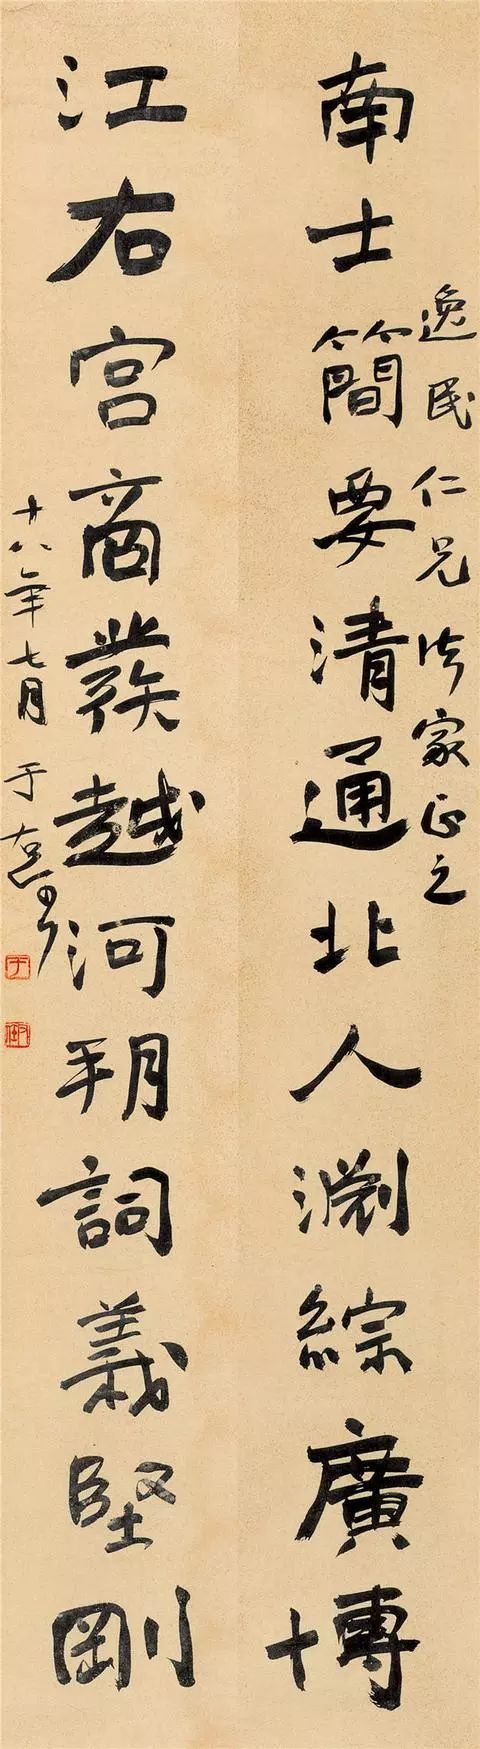 逸民仁兄法家正之
南士簡要清通北人淵綜廣博
江右宮商發越河朔詞義堅剛
十八年七月 于右任